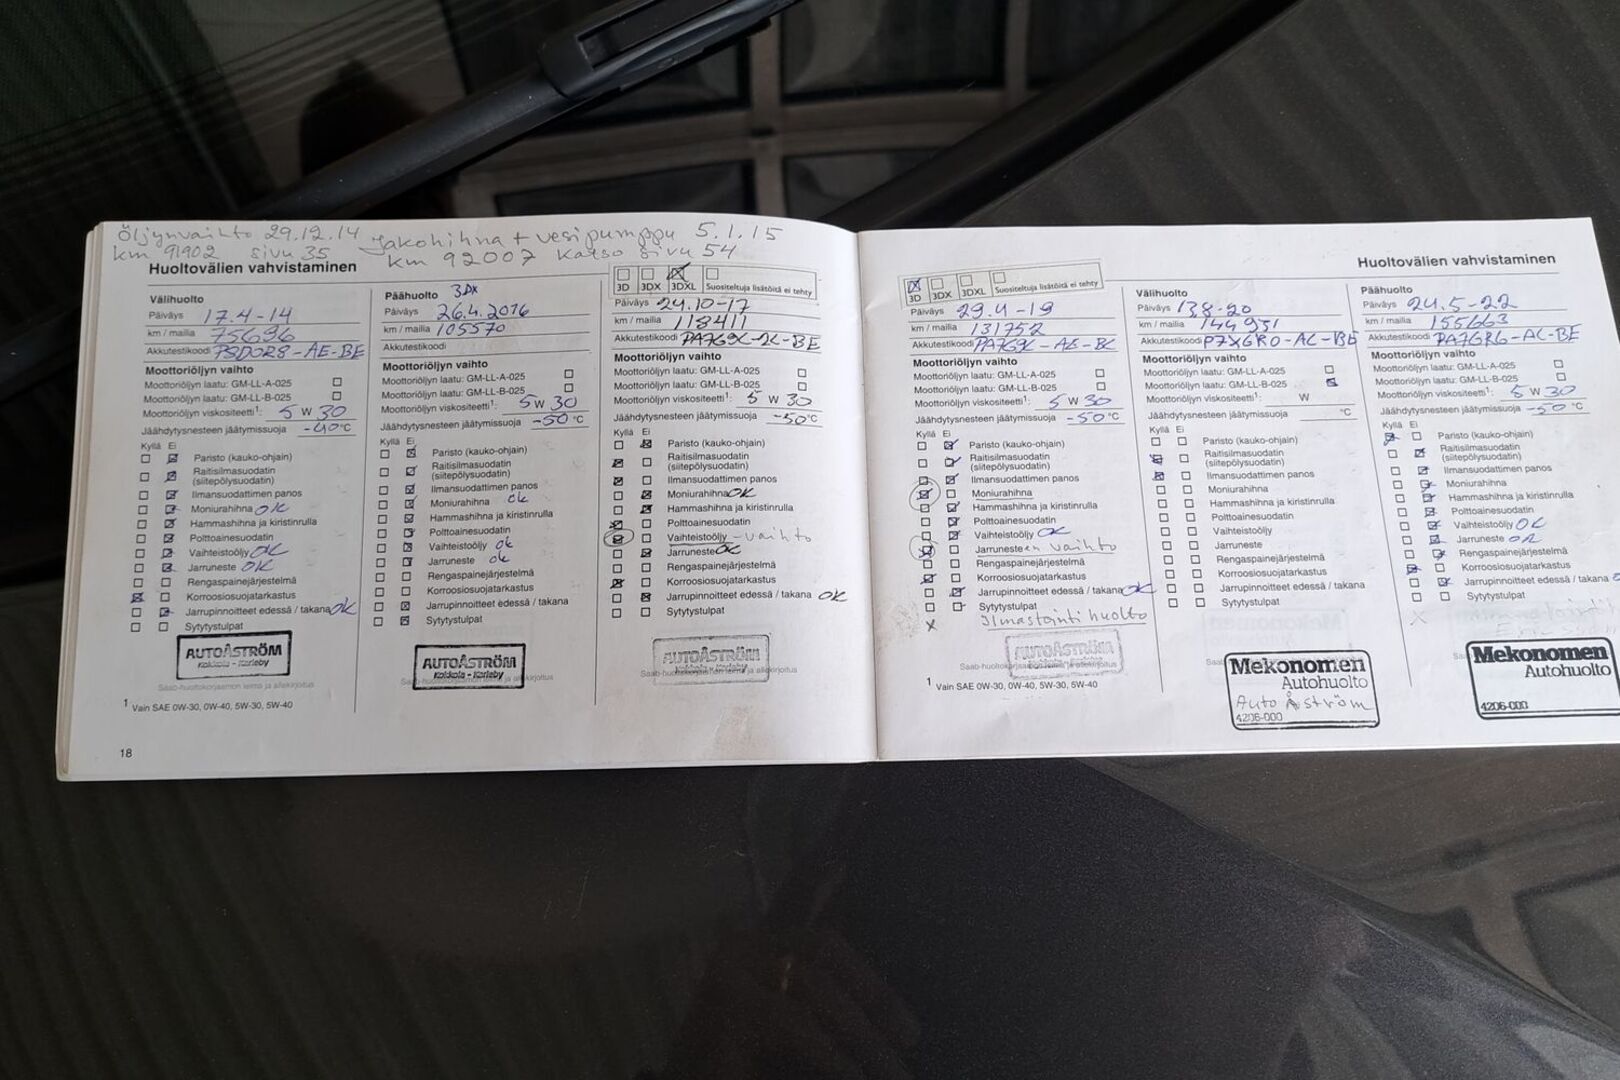 Öljynvaihto 29.12.14 Jakohihna + vesipumppu 5.1.15
km 91902 sivu 35 km 92007 katso sivu 54
Huoltovälien vahvistaminen
Välihuolto
Päiväys 17.4-14
km / mailia 75696
Akkutestikoodi P8D0R8-AE-BE
Moottoriöljyn vaihto
Moottoriöljyn laatu: GM-LL-A-025
Moottoriöljyn laatu: GM-LL-B-025
Moottoriöljyn viskositeetti¹: 5 W 30
Jäähdytysnesteen jäätymissuoja -40 °C
Kyllä Ei
Paristo (kauko-ohjain)
Raitisilmasuodatin
(siitepölysuodatin)
Ilmansuodattimen panos
Moniurahihna OK
Hammashihna ja kiristinrulla
Polttoainesuodatin
Vaihteistoöljy OK
Jarruneste OK
Rengaspainejärjestelmä
Korroosiosuojatarkastus
Jarrupinnoitteet edessä / takana OK
Sytytystulpat
AUTOÅSTRÖM
Kokkola - Karleby
Saab-huoltokorjaamon leima ja allekirjoitus
¹ Vain SAE 0W-30, 0W-40, 5W-30, 5W-40
18
Päähuolto 3DX
Päiväys 26.4.2016
km / mailia 105570
Akkutestikoodi
Moottoriöljyn vaihto
Moottoriöljyn laatu: GM-LL-A-025
Moottoriöljyn laatu: GM-LL-B-025
Moottoriöljyn viskositeetti¹: 5 W 30
Jäähdytysnesteen jäätymissuoja -50 °C
Kyllä Ei
Paristo (kauko-ohjain)
Raitisilmasuodatin
(siitepölysuodatin)
Ilmansuodattimen panos
Moniurahihna ok
Hammashihna ja kiristinrulla
Polttoainesuodatin
Vaihteistoöljy ok
Jarruneste ok
Rengaspainejärjestelmä
Korroosiosuojatarkastus
Jarrupinnoitteet edessä / takana
Sytytystulpat
AUTOÅSTRÖM
Kokkola - Karleby
Saab-huoltokorjaamon leima ja allekirjoitus
3D 3DX 3DXL Suositeltuja lisätöitä ei tehty
Päiväys 24.10-17
km / mailia 118411
Akkutestikoodi
Moottoriöljyn vaihto
Moottoriöljyn laatu: GM-LL-A-025
Moottoriöljyn laatu: GM-LL-B-025
Moottoriöljyn viskositeetti¹: 5 W 30
Jäähdytysnesteen jäätymissuoja -50 °C
Kyllä Ei
Paristo (kauko-ohjain)
Raitisilmasuodatin
(siitepölysuodatin)
Ilmansuodattimen panos
Moniurahihna OK
Hammashihna ja kiristinrulla
Polttoainesuodatin
Vaihteistoöljy - vaihto
Jarruneste OK
Rengaspainejärjestelmä
Korroosiosuojatarkastus
Jarrupinnoitteet edessä / takana OK
Sytytystulpat
AUTOÅSTRÖM
Kokkola - Karleby
Saab-huoltokorjaamon leima ja allekirjoitus
Huoltovälien vahvistaminen
3D 3DX 3DXL Suositeltuja lisätöitä ei tehty
Päiväys 29.4-19
km / mailia 131752
Akkutestikoodi
Moottoriöljyn vaihto
Moottoriöljyn laatu: GM-LL-A-025
Moottoriöljyn laatu: GM-LL-B-025
Moottoriöljyn viskositeetti¹: 5 W 30
Jäähdytysnesteen jäätymissuoja -50 °C
Kyllä Ei
Paristo (kauko-ohjain)
Raitisilmasuodatin
(siitepölysuodatin)
Ilmansuodattimen panos
Moniurahihna
Hammashihna ja kiristinrulla
Polttoainesuodatin
Vaihteistoöljy OK
Jarrunesteen vaihto
Rengaspainejärjestelmä
Korroosiosuojatarkastus
Jarrupinnoitteet edessä / takana OK
Sytytystulpat
X Ilmastointi huolto
AUTOÅSTRÖM
Saab-huoltokorjaamon leima ja allekirjoitus
¹ Vain SAE 0W-30, 0W-40, 5W-30, 5W-40
Välihuolto
Päiväys 13.8-20
km / mailia 144951
Akkutestikoodi P7X6R0-AC-BE
Moottoriöljyn vaihto
Moottoriöljyn laatu: GM-LL-A-025
Moottoriöljyn laatu: GM-LL-B-025
Moottoriöljyn viskositeetti¹: W
Jäähdytysnesteen jäätymissuoja °C
Kyllä Ei
Paristo (kauko-ohjain)
Raitisilmasuodatin
(siitepölysuodatin)
Ilmansuodattimen panos
Moniurahihna
Hammashihna ja kiristinrulla
Polttoainesuodatin
Vaihteistoöljy
Jarruneste
Rengaspainejärjestelmä
Korroosiosuojatarkastus
Jarrupinnoitteet edessä / takana
Sytytystulpat
Mekonomen
Autohuolto
Auto Åström
4206-000
Päähuolto
Päiväys 24.5-22
km / mailia 155663
Akkutestikoodi PA7GR6-AC-BE
Moottoriöljyn vaihto
Moottoriöljyn laatu: GM-LL-A-025
Moottoriöljyn laatu: GM-LL-B-025
Moottoriöljyn viskositeetti¹: 5 W 30
Jäähdytysnesteen jäätymissuoja -50 °C
Kyllä Ei
Paristo (kauko-ohjain)
Raitisilmasuodatin
(siitepölysuodatin)
Ilmansuodattimen panos
Moniurahihna
Hammashihna ja kiristinrulla
Polttoainesuodatin
Vaihteistoöljy OK
Jarruneste OK
Rengaspainejärjestelmä
Korroosiosuojatarkastus
Jarrupinnoitteet edessä / takana
Sytytystulpat
X
Mekonomen
Autohuolto
4206-000